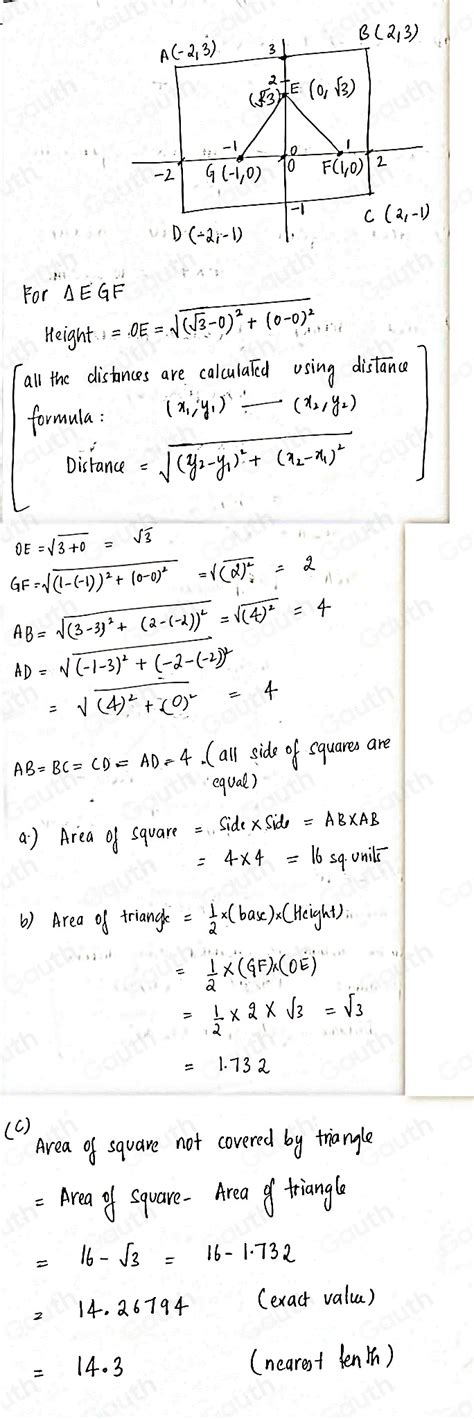 B(2,3)
A(-2,3)
3
2
(√3) E (0,√3)
-1 0 1
-2 G(-1,0) 0 F(1,0) 2
-1
C (2,-1)
D (-2,-1)
For ΔEGF
Height = OE = √(√3-0)² + (0-0)²
all the distances are calculated using distance
formula: (x₁,y₁) — (x₂,y₂)
Distance = √(y₂-y₁)² + (x₂-x₁)²
OE = √3+0 = √3
GF = √(1-(-1))² + (0-0)² = √(2)² = 2
AB = √(3-3)² + (2-(-2))² = √(4)² = 4
AD = √(-1-3)² + (-2-(-2))²
= √(4)² + (0)² = 4
AB = BC = CD = AD = 4 . (all side of squares are
equal)
a.) Area of square = Side × Side = AB×AB
= 4×4 = 16 sq.units
b) Area of triangle = 1/2 ×(base)×(Height)
= 1/2 ×(GF)×(OE)
= 1/2 × 2 × √3 = √3
= 1.732
(C)
Area of square not covered by triangle
= Area of square - Area of triangle
= 16 - √3 = 16 - 1.732
= 14.26794 (exact value)
= 14.3 (nearest tenth)